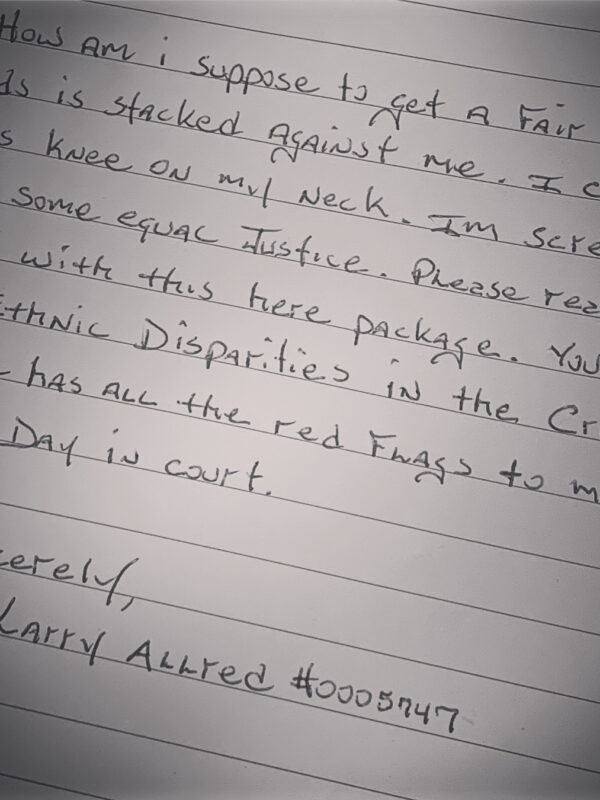 How Am i suppose to get A FAir
is stacked AgAiNst me. I
KNee ON my NecK. Im scre
some equal Justice. Please rea
with this here package. You
ethnic Disparities iN the Cr
hAs ALL the red FLAgs to m
DAy in court.
cerely,
LArry ALLred #0005747